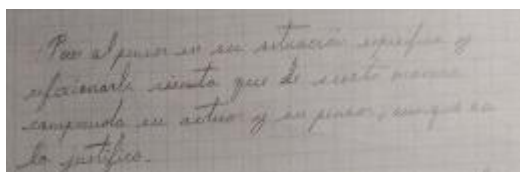 Pero al pensar en su situación específica y
reflexionarla siento que de cierta manera
comprendo su actuar y su pensar, aunque no
lo justifico.